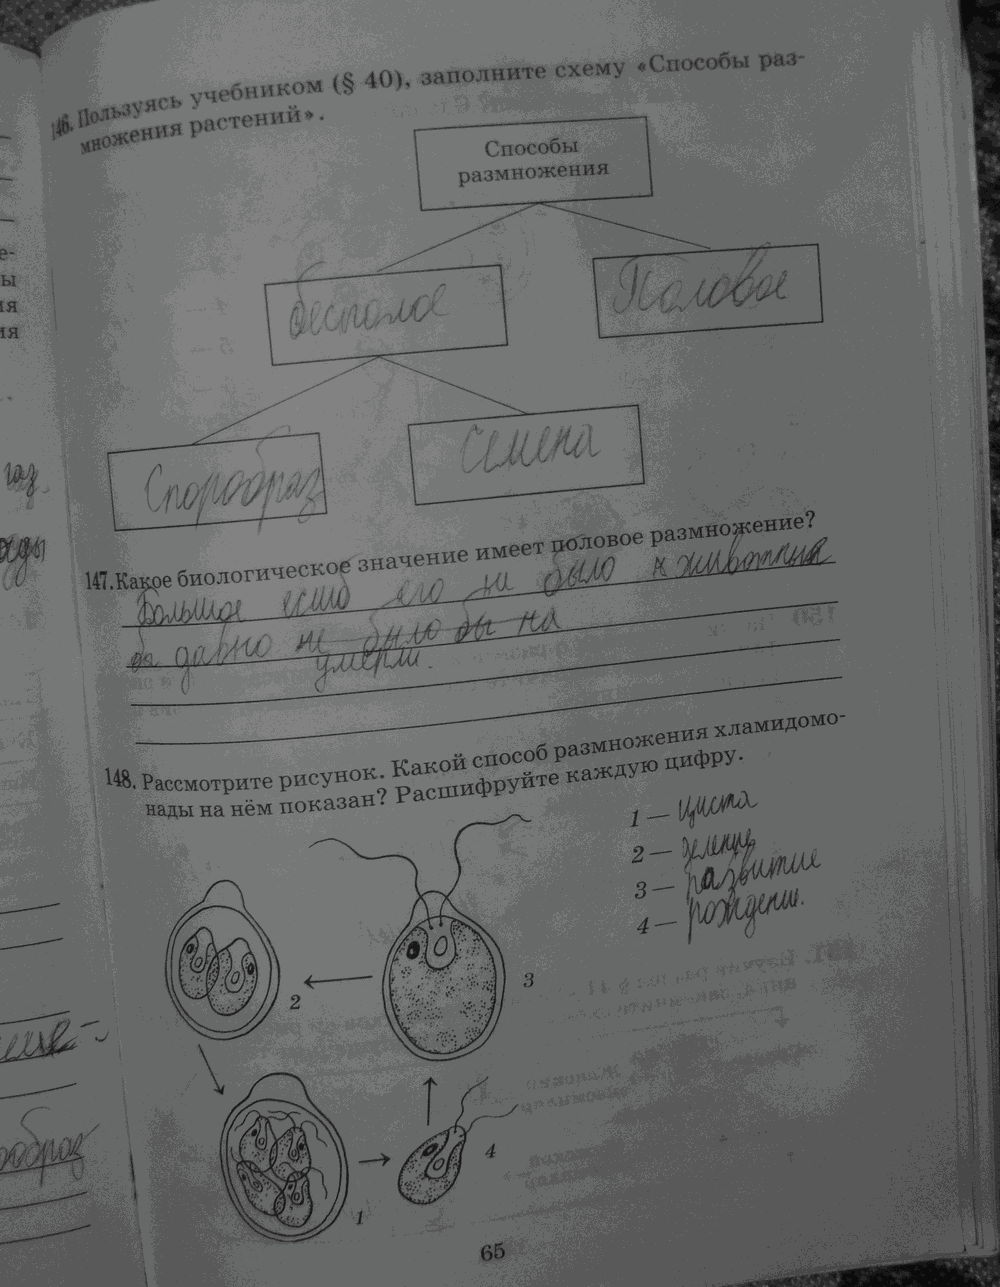 146. Пользуясь учебником (§ 40), заполните схему «Способы раз-
множения растений».
Способы
размножения
бесполое
Половое
Спорообраз
Семена
147. Какое биологическое значение имеет половое размножение?
Большое еслиб его ни было к животных
бы давно не было бы на
умерли.
148. Рассмотрите рисунок. Какой способ размножения хламидомо-
нады на нём показан? Расшифруйте каждую цифру.
1 — Циста
2 — деление
3 — развитие
4 — рождени.
2
3
4
1
65
е-
ы
ия
ия
газ